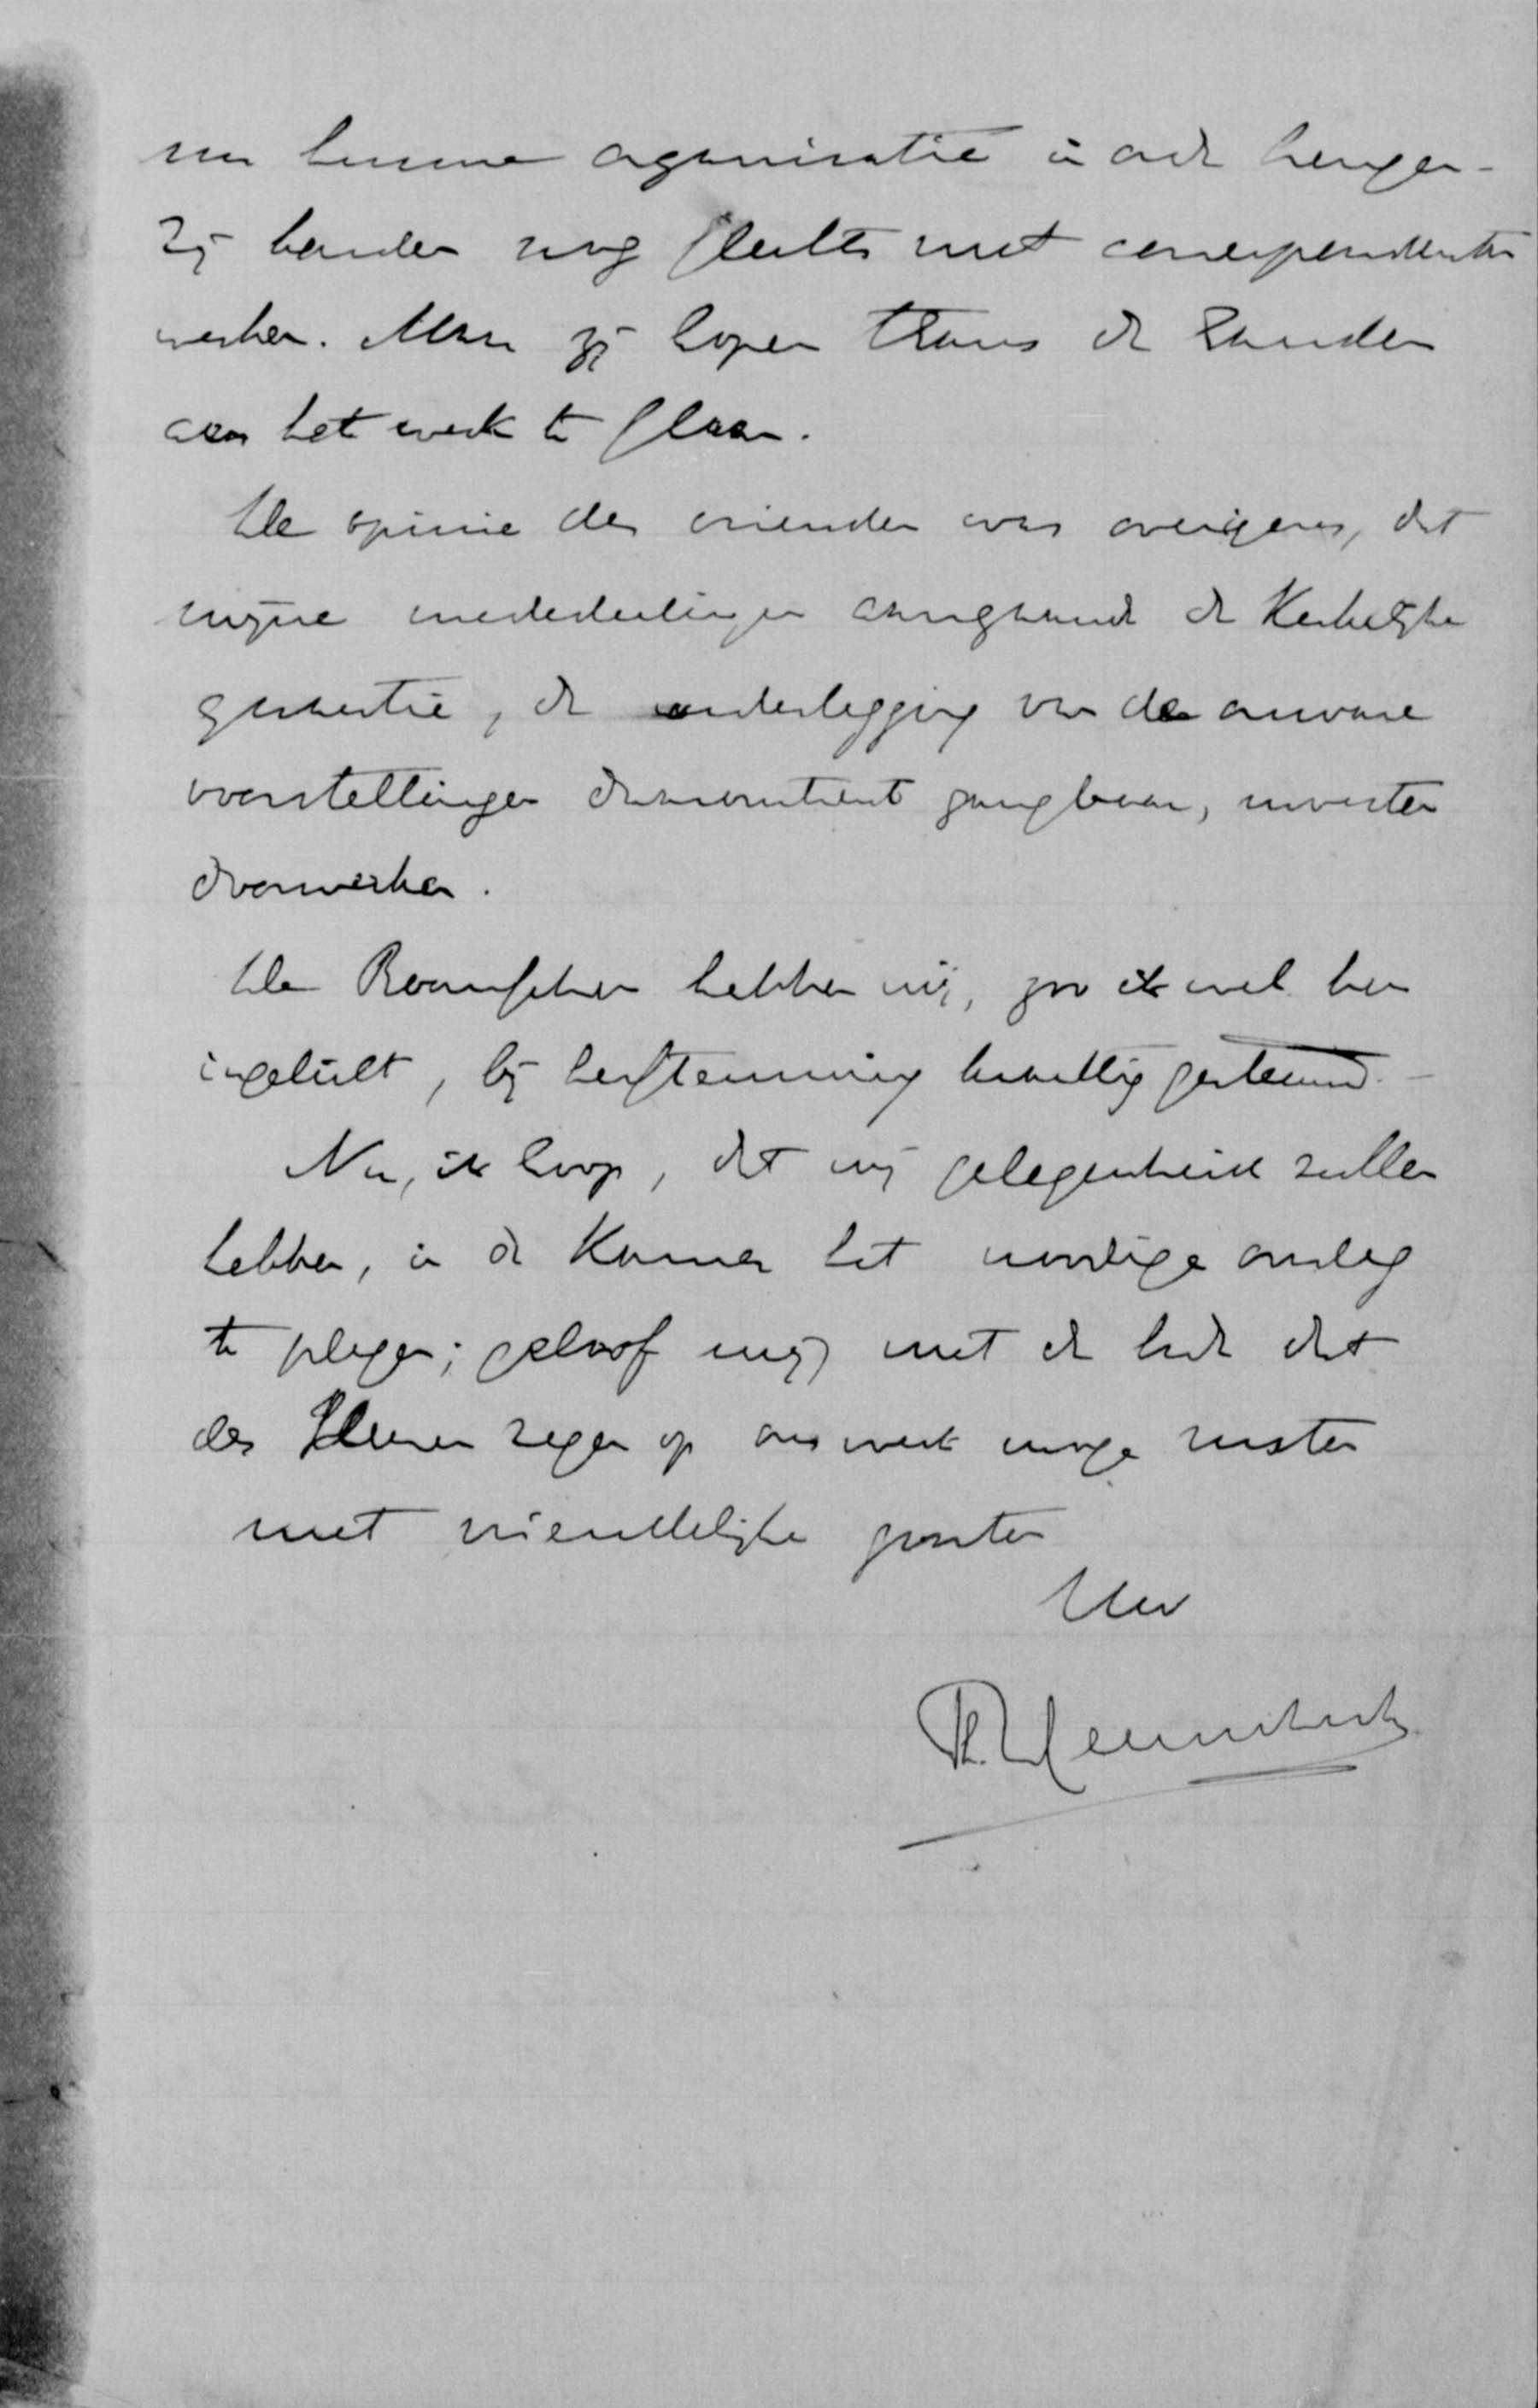 nu hunne organisatie in orde brengen -
Zij konden nog slechts met correspondenten
werken. Maar zij hopen thans de handen
aan het werk te slaan.
De opinie der vrienden was overigens, dat
mijne mededeelingen aangaande de Kerkelijke
quaestie, de wederlegging van de onware
voorstellingen dienomtrent gangbaar, moesten
doorwerken.
De Roomschen hebben mij, zoo ik wel ben
ingelicht, bij herstemming krachtig gesteund. -
Nu, ik hoop, dat wij gelegenheid zullen
hebben, in de Kamer het noodige overleg
te plegen; geloof mij, met de bede dat
des Heeren zegen op ons werk moge rusten
met vriendelijke groeten
Uw
Th. Heemskerk